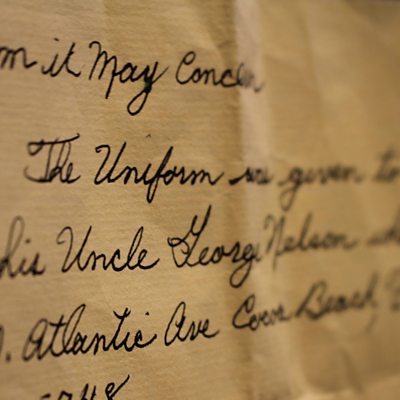 m it May Concern
The Uniform was given to
his Uncle George Nelson
. Atlantic Ave Cocoa Beach,